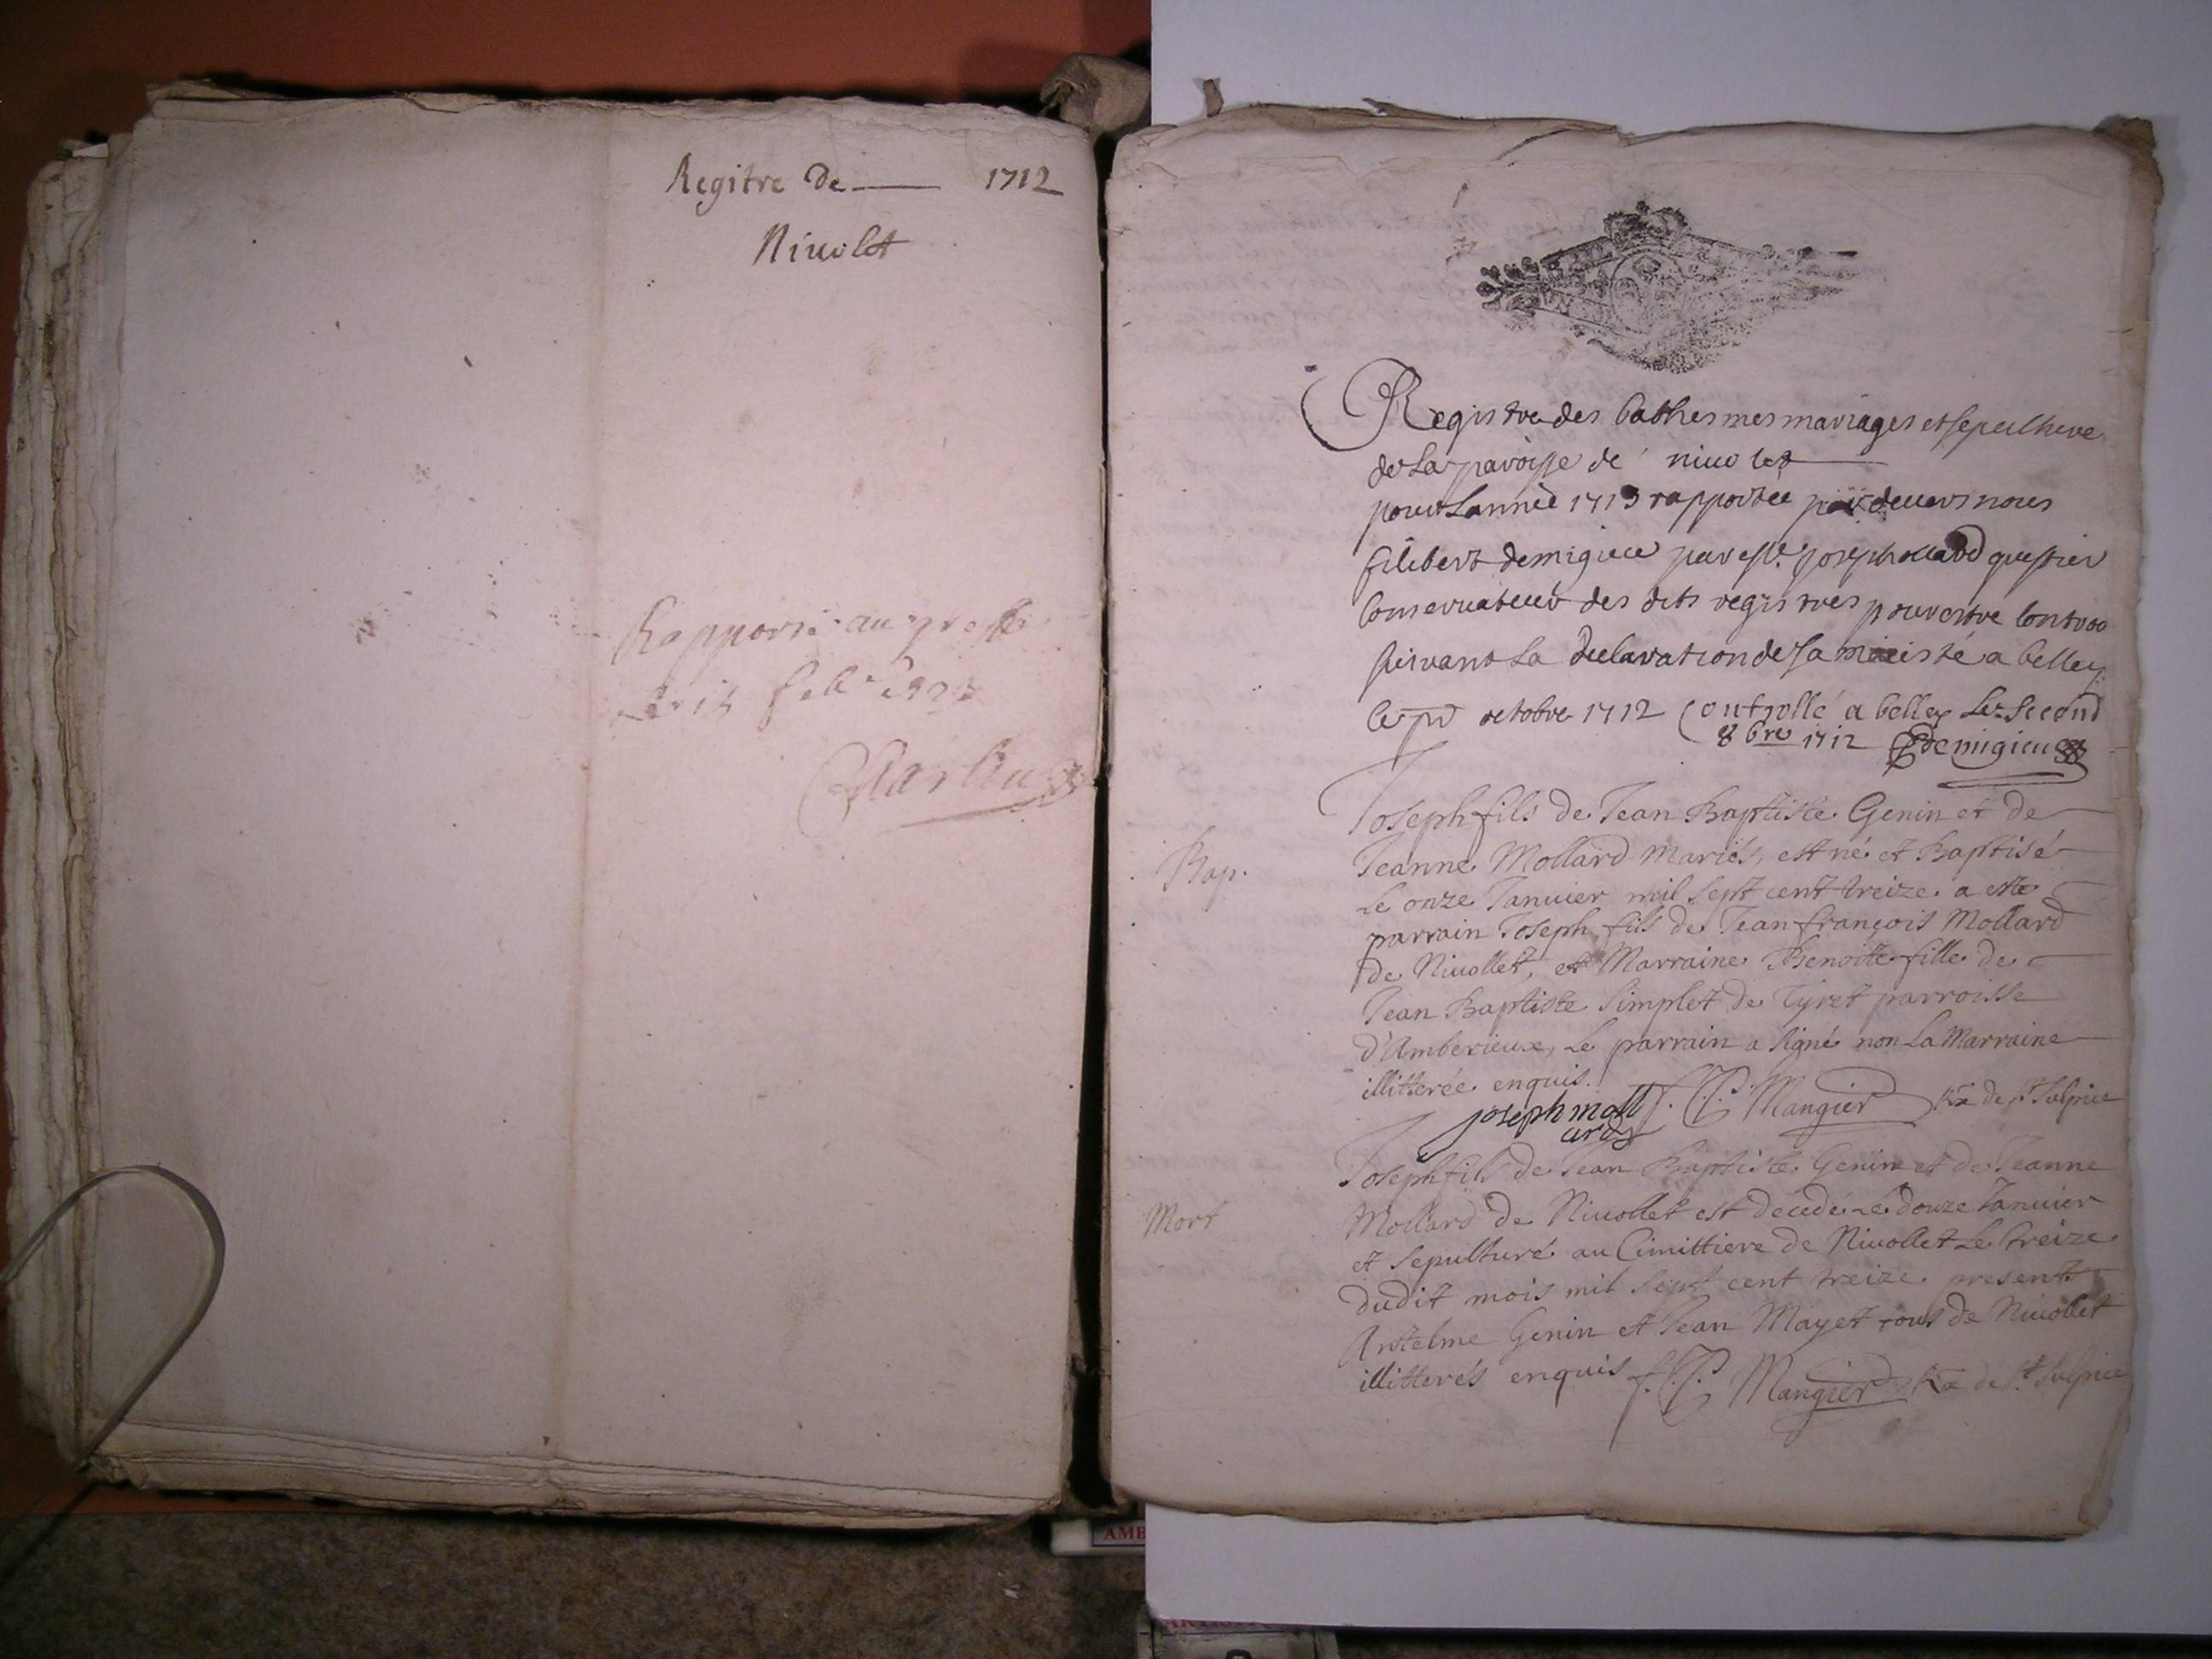 Regitre de 1712
Niuolet
Rapporté au greffe
Le 15 feb.
Registre des bathesmes mariages et sepulture
de La paroisse de niuolet
pour Lannée 1713 rapportée par deuers nous
filibert demigieu par Joseph greffier
Conseruateur des dits registres pour estre Controo
suivant La declaration de sa maiesté a belley
Le pr octobre 1712 Controllé a belley Le second
8bre 1712 demigieu
Joseph fils de Jean Baptiste Genin et de
Bap.
Jeanne Mollard mariés, est né et Baptisé
Le onze Januier mil sept cent treize. a esté
parrain Joseph fils de Jean françois Mollard
de Niuollet, et Marraine Benoitte fille de
Jean Baptiste Simplet de Tyret parroisse
d'Amberieux, Le parrain a signé non La Marraine
illitterée enquis.
joseph moll
ard
Mangier de St Sulpice
Joseph fils de Jean Baptiste Genin et de Jeanne
Mort
Mollard de Niuollet est décedé Le douze Januier
et sepulturé au Cimittiere de Niuollet Le treize
dudit mois mil sept cent treize. presents
Antelme Genin et Jean Mayet tous de Niuollet
illitterés enquis Mangier de St Sulpice